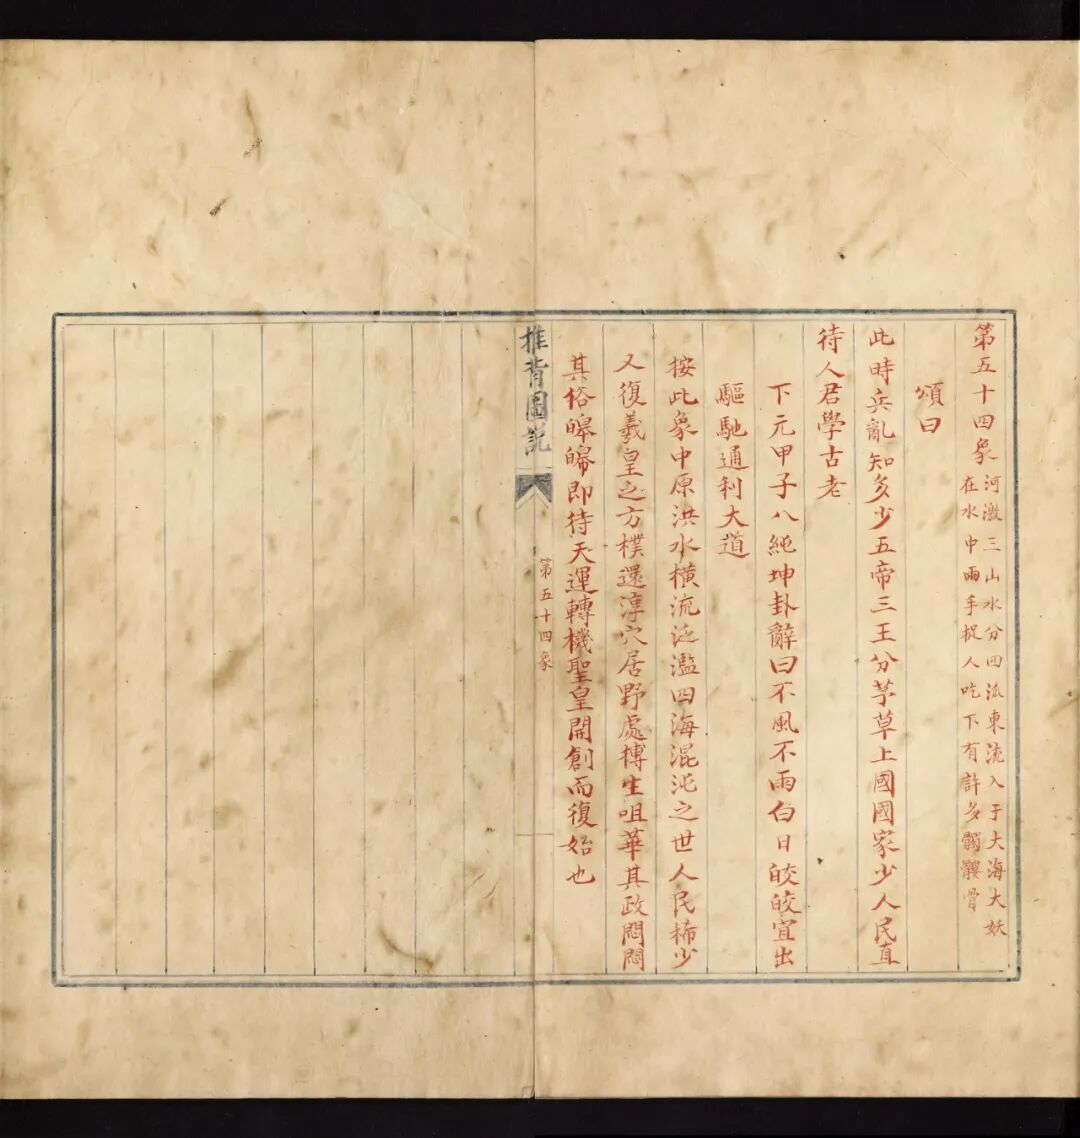 第五十四象 河激三山水分四派東流入于大海大妖
在水中兩手捉人吃下有許多髑髏骨
頌曰
此時兵亂知多少五帝三王分茅草上國國家少人民直
待人君學古老
下元甲子八純坤卦辭曰不風不雨白日皎皎宜出
驅馳通利大道
按此象中原洪水橫流泛濫四海混沌之世人民稀少
又復羲皇之方樸還淳穴居野處摶生咀華其政悶悶
其俗皞皞即待天運轉機聖皇開創而復始也
推背圖說
第五十四象